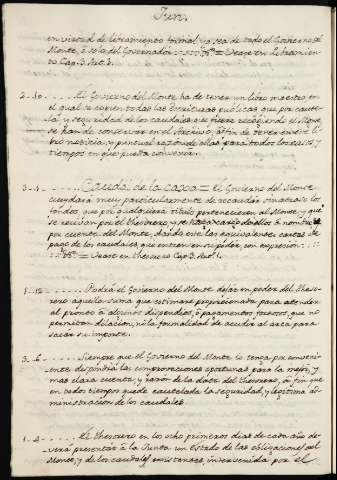 Jun.
en virtud de libramiento formal, ya sea de todo el Govierno del
Monte, ô solo del Governador = Vease en Libramien-
to Cap. 3. Art. 3.
2..10.......El Govierno del Monte ha de tener un libro maestro, en
el qual se copien todas las Escrituras publicas, que por caute-
la, y seguridad de los caudales que fiere recogiendo el Monte
se han de conservar en el Archivo, à fin de tener en este li-
bro noticia, y puntual razon de ellas, para todos los casos, y
tiempos en que pueda convenir.
3..1.......Cauda. de la Caxa = El Govierno del Monte
cuydarà muy particularmente de recaudar
fondos que por qualquiera titulo pertenecieren al Monte, y que
se recivan por el thesorero, y se haga cargo de ellos à nombre, y
por cuenta del Monte, dando este las equivalentes cartas de
pago de los caudales, que entren en su poder, con expresion
= Vease en thesorero Cap. 3. Art. 1.
1..12.......Podrà el Govierno del Monte dejar en poder del theso-
rero aquella suma que estimare proporcionada para atender
al pronto à algunos dispendios, ò pagamentos forzosos, que no
permitan dilacion, ni la formalidad de acudir al arca para
sacar su importe.
3..6.......Siempre que el Govierno del Monte lo tenga por conveni-
ente dispondrà las comprovaciones oportunas para la mejor, y
mas clara cuenta, y razon de la data del thesorero, à fin que
en todos tiempos quede cautelada la seguridad, y legitima ad-
ministracion de los caudales.
1..4.......El thesorero en los ocho primeros dias de cada año de-
verà presentar à la Junta un Estado de las obligaciones del
Monte, y de los caudales existentes, intervenido por el